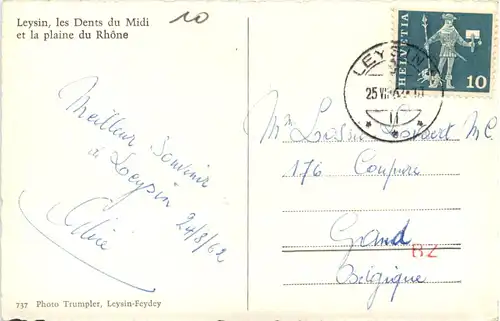 Leysin, les Dents du Midi
et la plaine du Rhône
10
HELVETIA
10
LEYSIN
25 VI
Meilleur Souvenir
de Leysin
24/8/62
Mme
176 Coupure
Gand
BZ
Belgique
737 Photo Trumpler, Leysin-Feydey